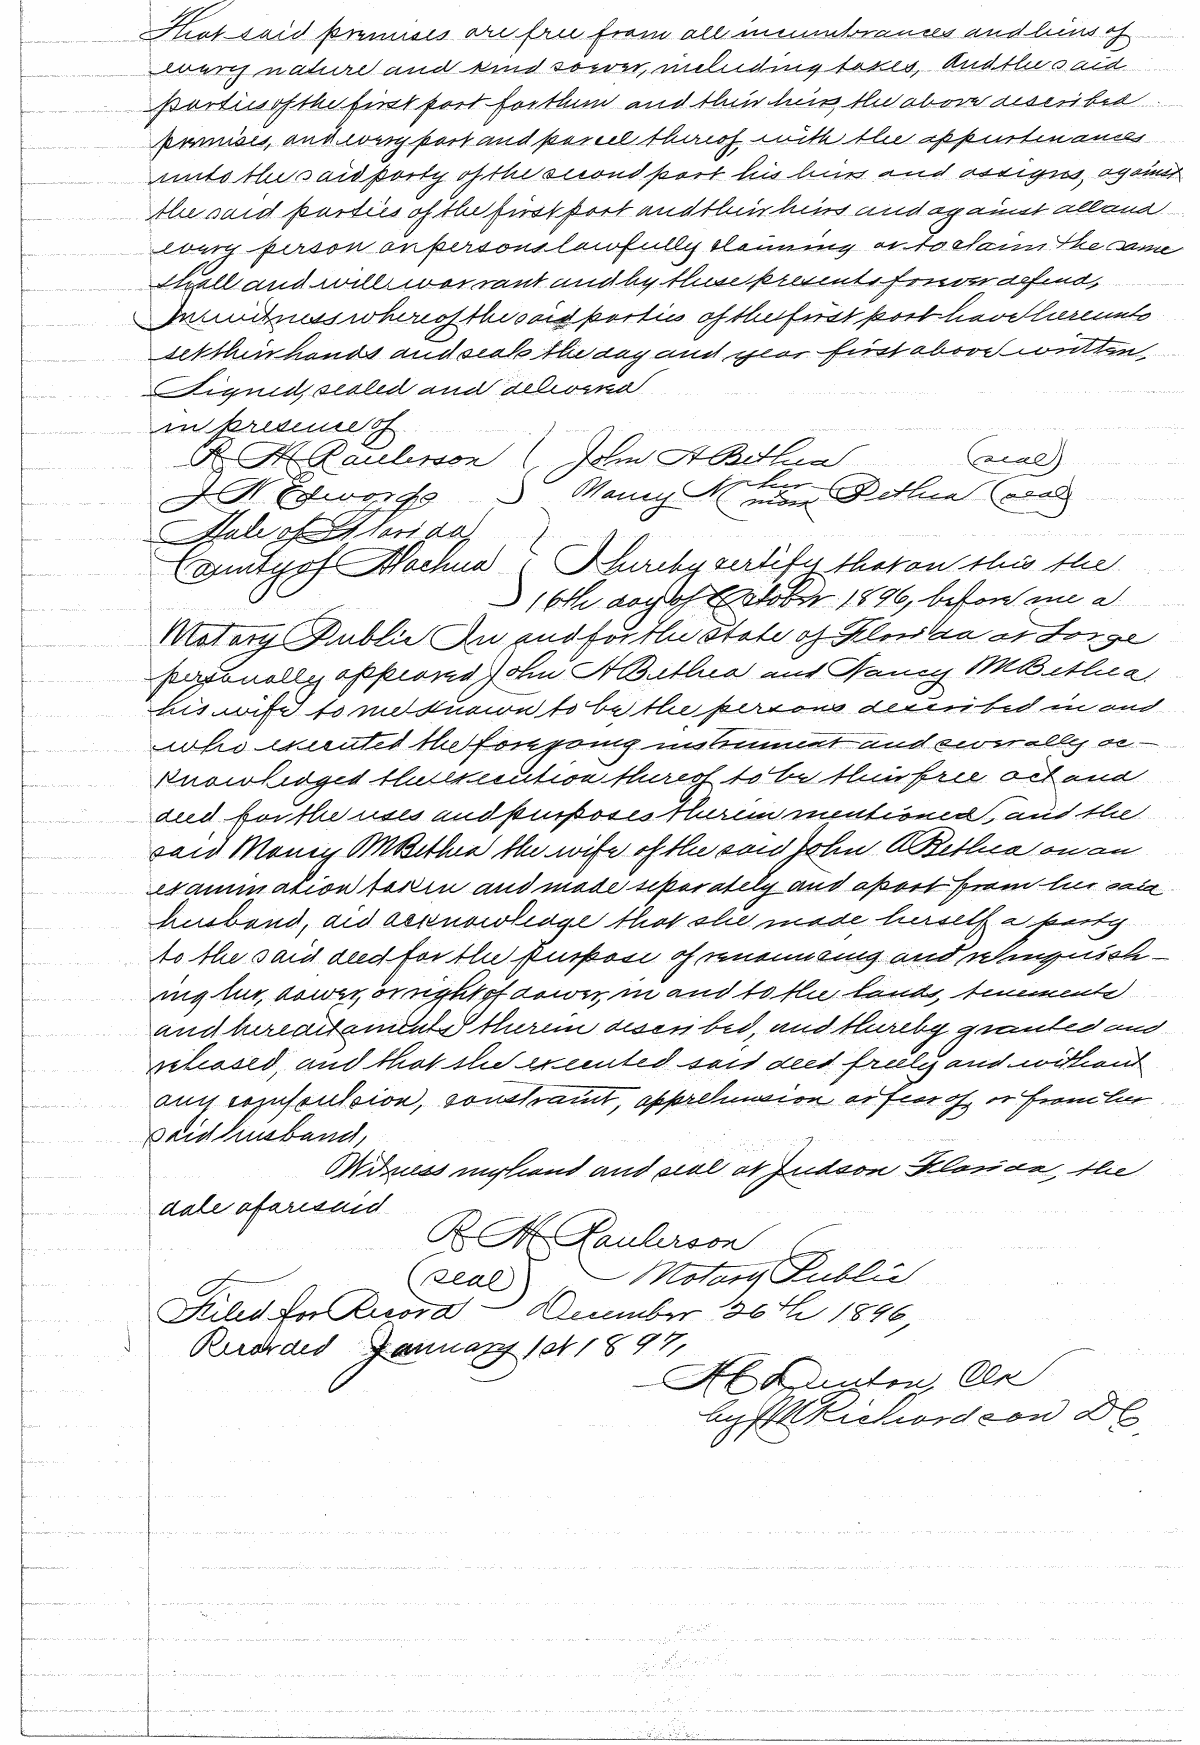 That said premises are free from all incumbrances and liens of
every nature and kind soever, including taxes, And the said
parties of the first part for them and their heirs, the above described
premises, and every part and parcel thereof, with the appurtenances
unto the said party of the second part his heirs and assigns, against
the said parties of the first part and their heirs and against all and
every person or persons lawfully claiming or to claim the same
shall and will warrant and by these presents forever defend,
In witness whereof the said parties of the first part have hereunto
set their hands and seals the day and year first above written,
Signed, sealed and delivered
in presence of
R H Raulerson ) John A Bethea (seal)
J N Edwards ) Nancy M her mark Bethea (seal)
State of Florida )
County of Alachua ) I hereby certify that on this the
16th day of October 1896, before me a
Notary Public In and for the State of Florida at Large
personally appeared John A Bethea and Nancy M Bethea
his wife to me known to be the persons described in and
who executed the foregoing instrument and severally ac-
knowledged the execution thereof to be their free act and
deed for the uses and purposes therein mentioned, and the
said Nancy M Bethea the wife of the said John A Bethea on an
examination taken and made separately and apart from her said
husband, did acknowledge that she made herself a party
to the said deed for the purpose of renouncing and relinquish-
ing her, dower, or right of dower, in and to the lands, tenements
and hereditaments therein described, and thereby granted and
released, and that she executed said deed freely and without
any compulsion, constraint, apprehension or fear of, or from her
said husband,
Witness my hand and seal at Judson Florida, the
date aforesaid
R H Raulerson
(seal) Notary Public
Filed for Record December 26th 1896,
Recorded January 1st 1897,
H C Denton, Clk
by Richardson D C,